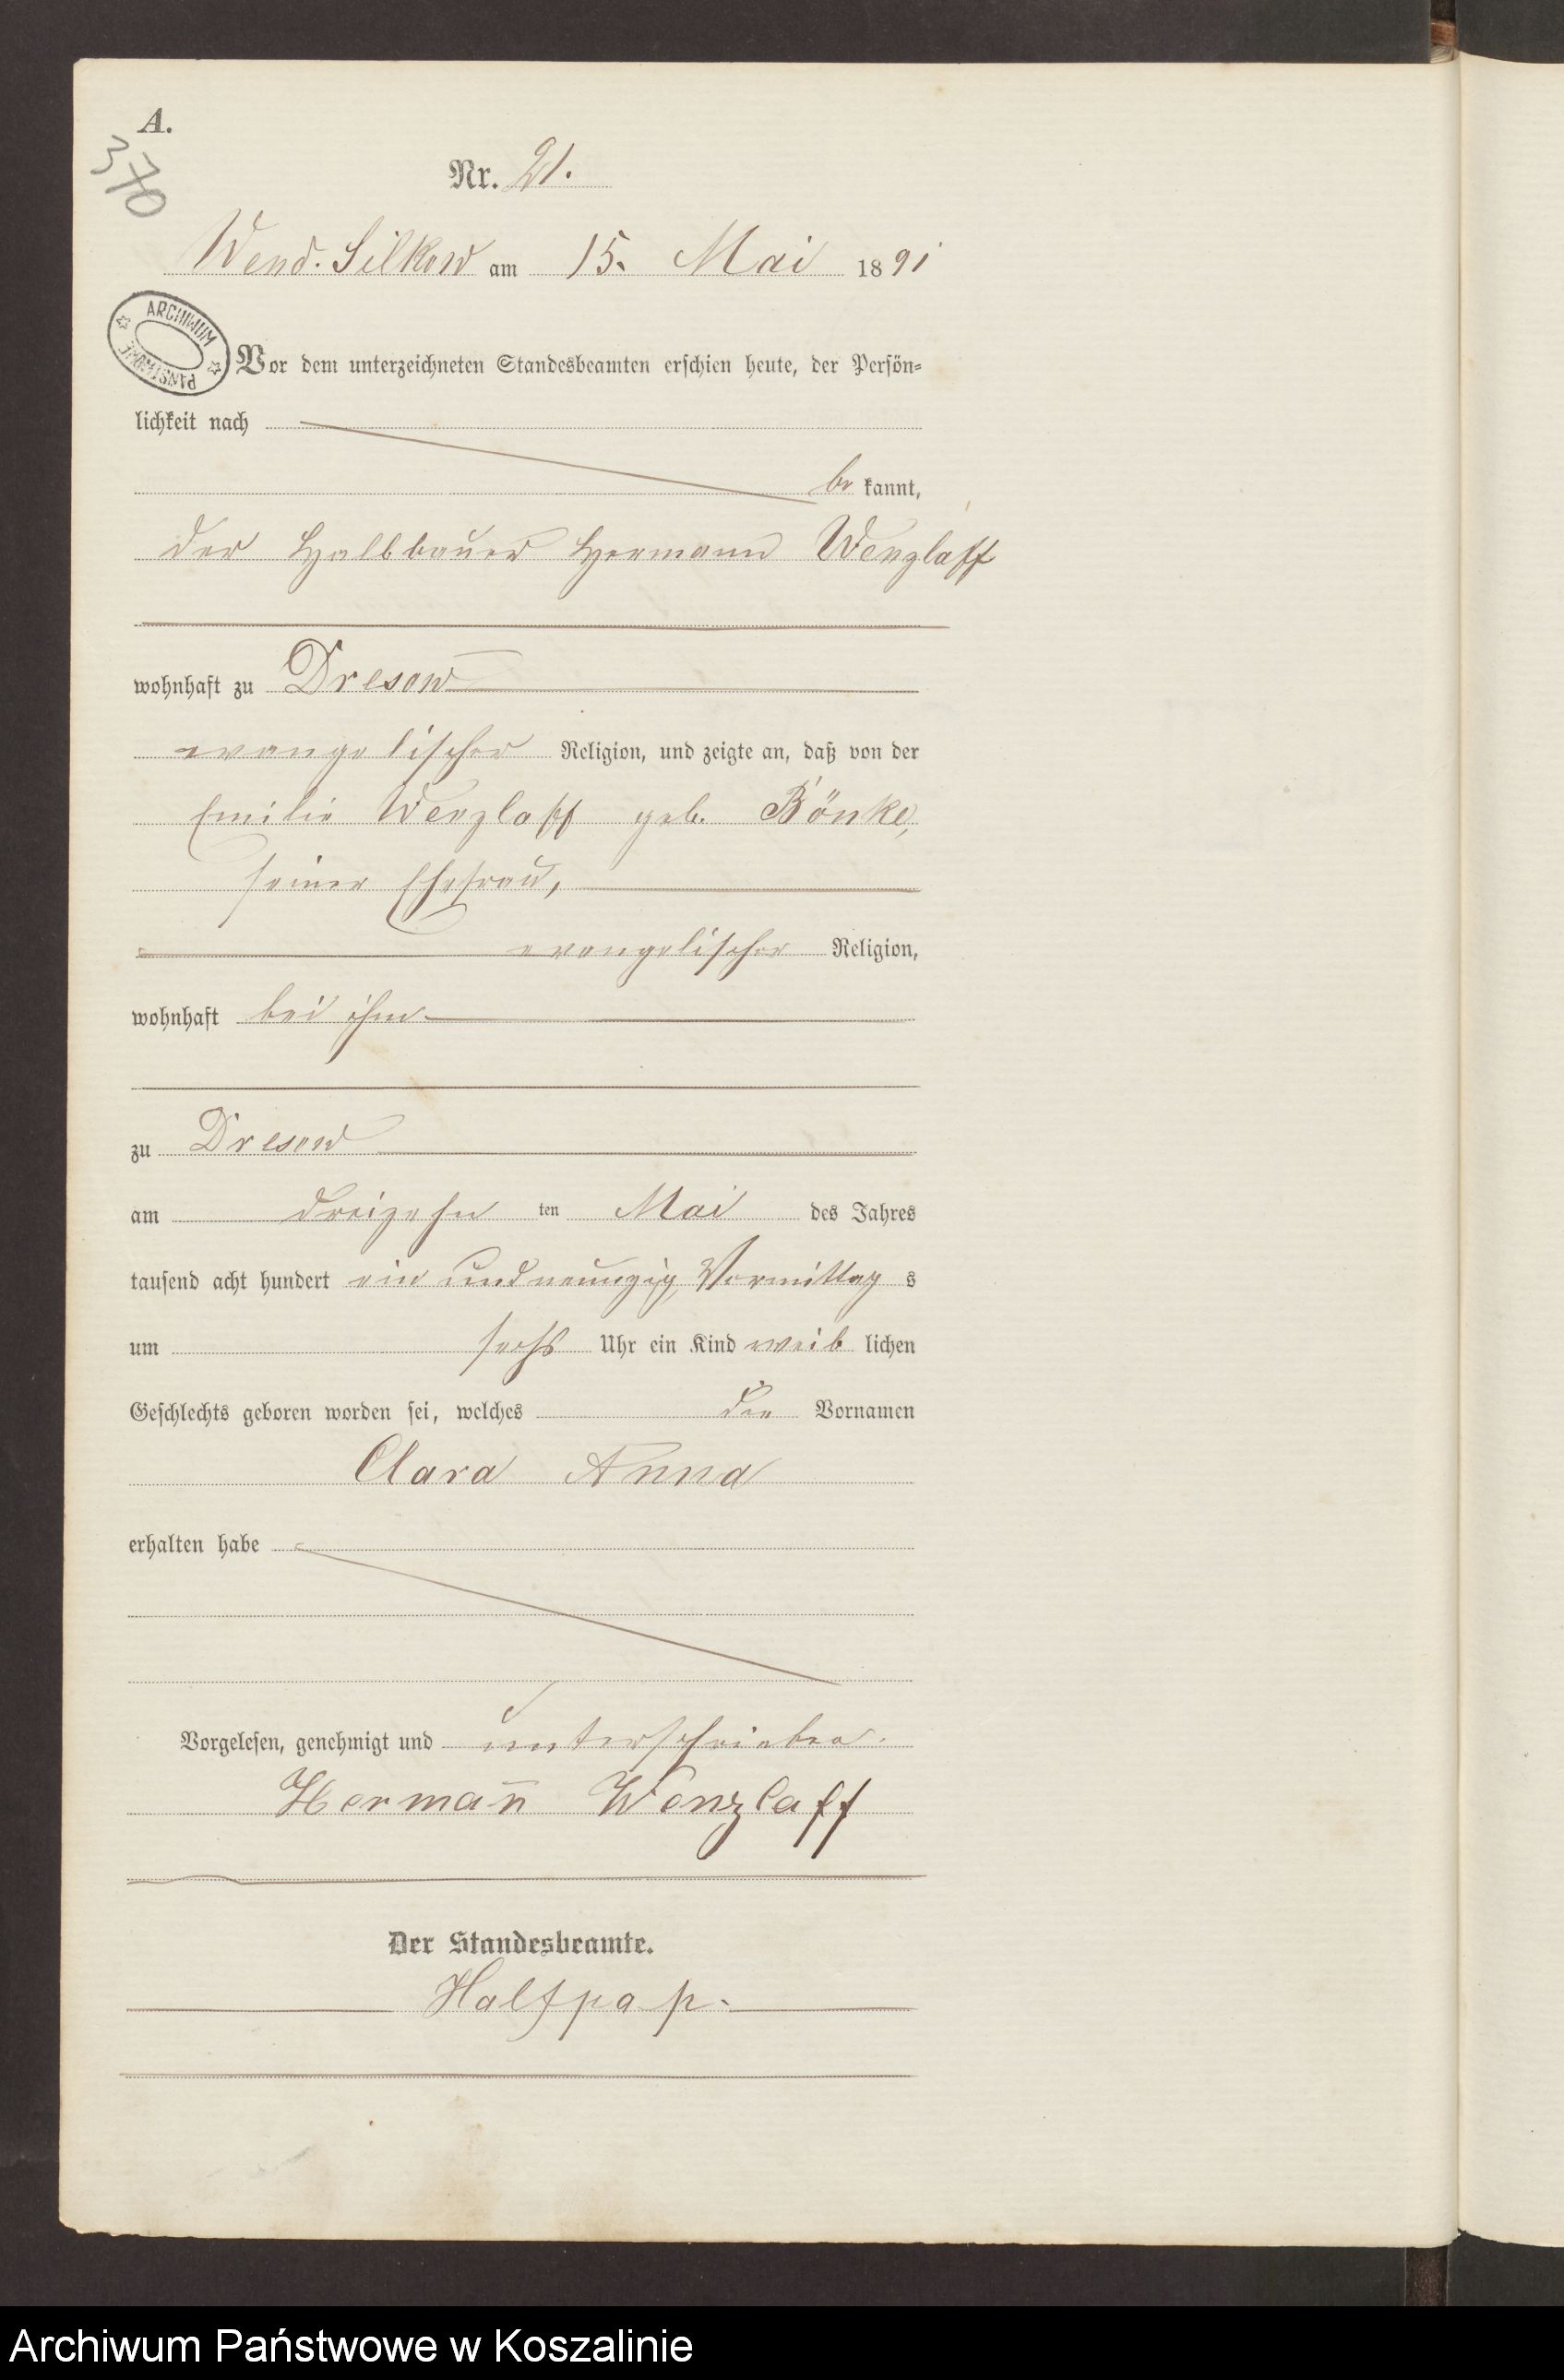 A.
370
Nr. 21.
Wend. Silkow am 15. Mai 1891
ARCHIWUM PAŃSTWOWE
Vor dem unterzeichneten Standesbeamten erschien heute, der Persön-
lichkeit nach
be kannt,
der Halbbauer Hermann Wenzlaff
wohnhaft zu Dresow
evangelischer Religion, und zeigte an, daß von der
Emilie Wenzlaff geb. Bönke,
seiner Ehefrau,
evangelischer Religion,
wohnhaft bei ihm
zu Dresow
am dreizehn ten Mai des Jahres
tausend acht hundert ein und neunzig, Vormittag s
um sechs Uhr ein Kind weib lichen
Geschlechts geboren worden sei, welches die Vornamen
Clara Anna
erhalten habe
Vorgelesen, genehmigt und unterschrieben.
Herman̄ Wenzlaff
Der Standesbeamte.
Halfpap.
Archiwum Państwowe w Koszalinie